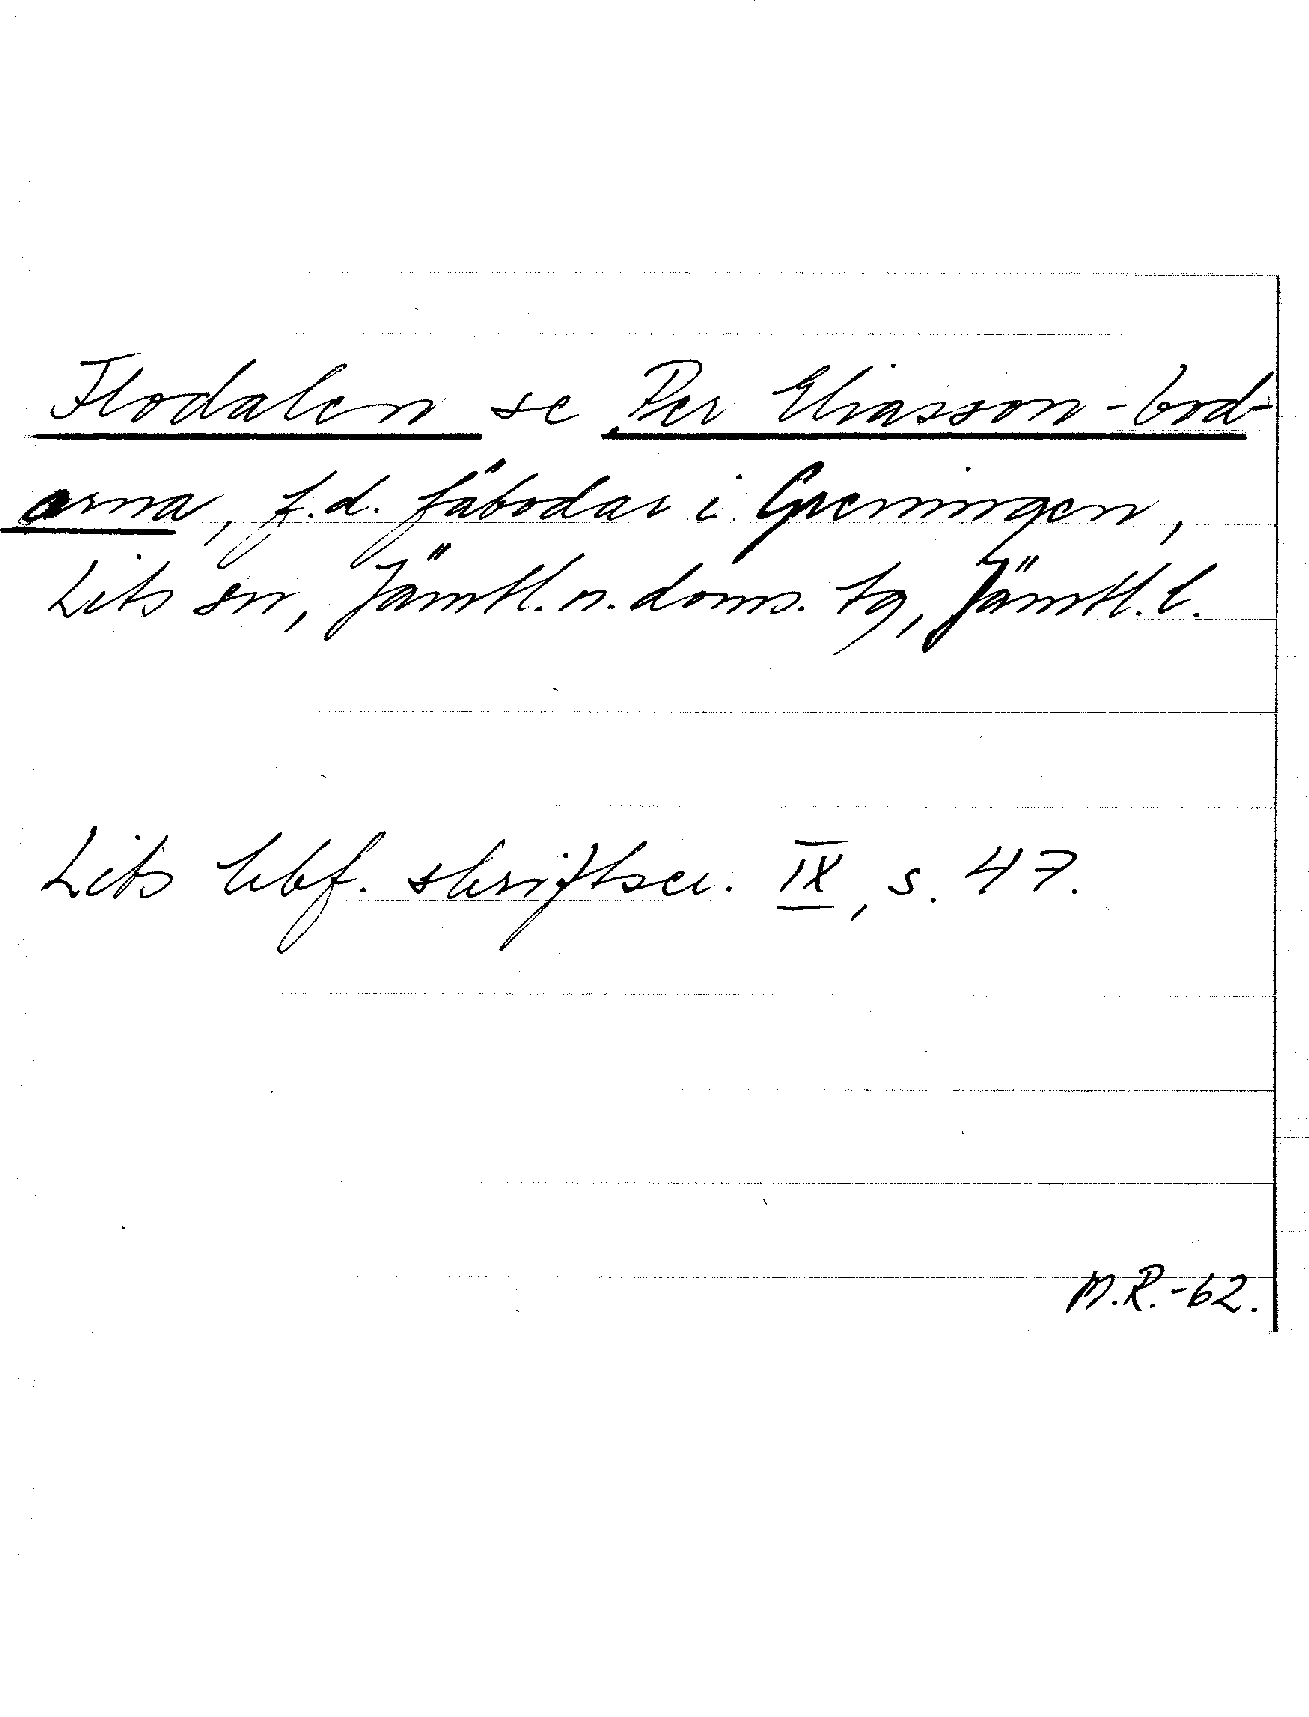 Flodalen se Per Eliasson-bod-
arna, f.d. fäbodar i Greningen,
Lits sn, Jämtl. n. doms. tg, Jämtl. l.
Lits hbf. skriftser. IX, s. 47.
M.R.-62.